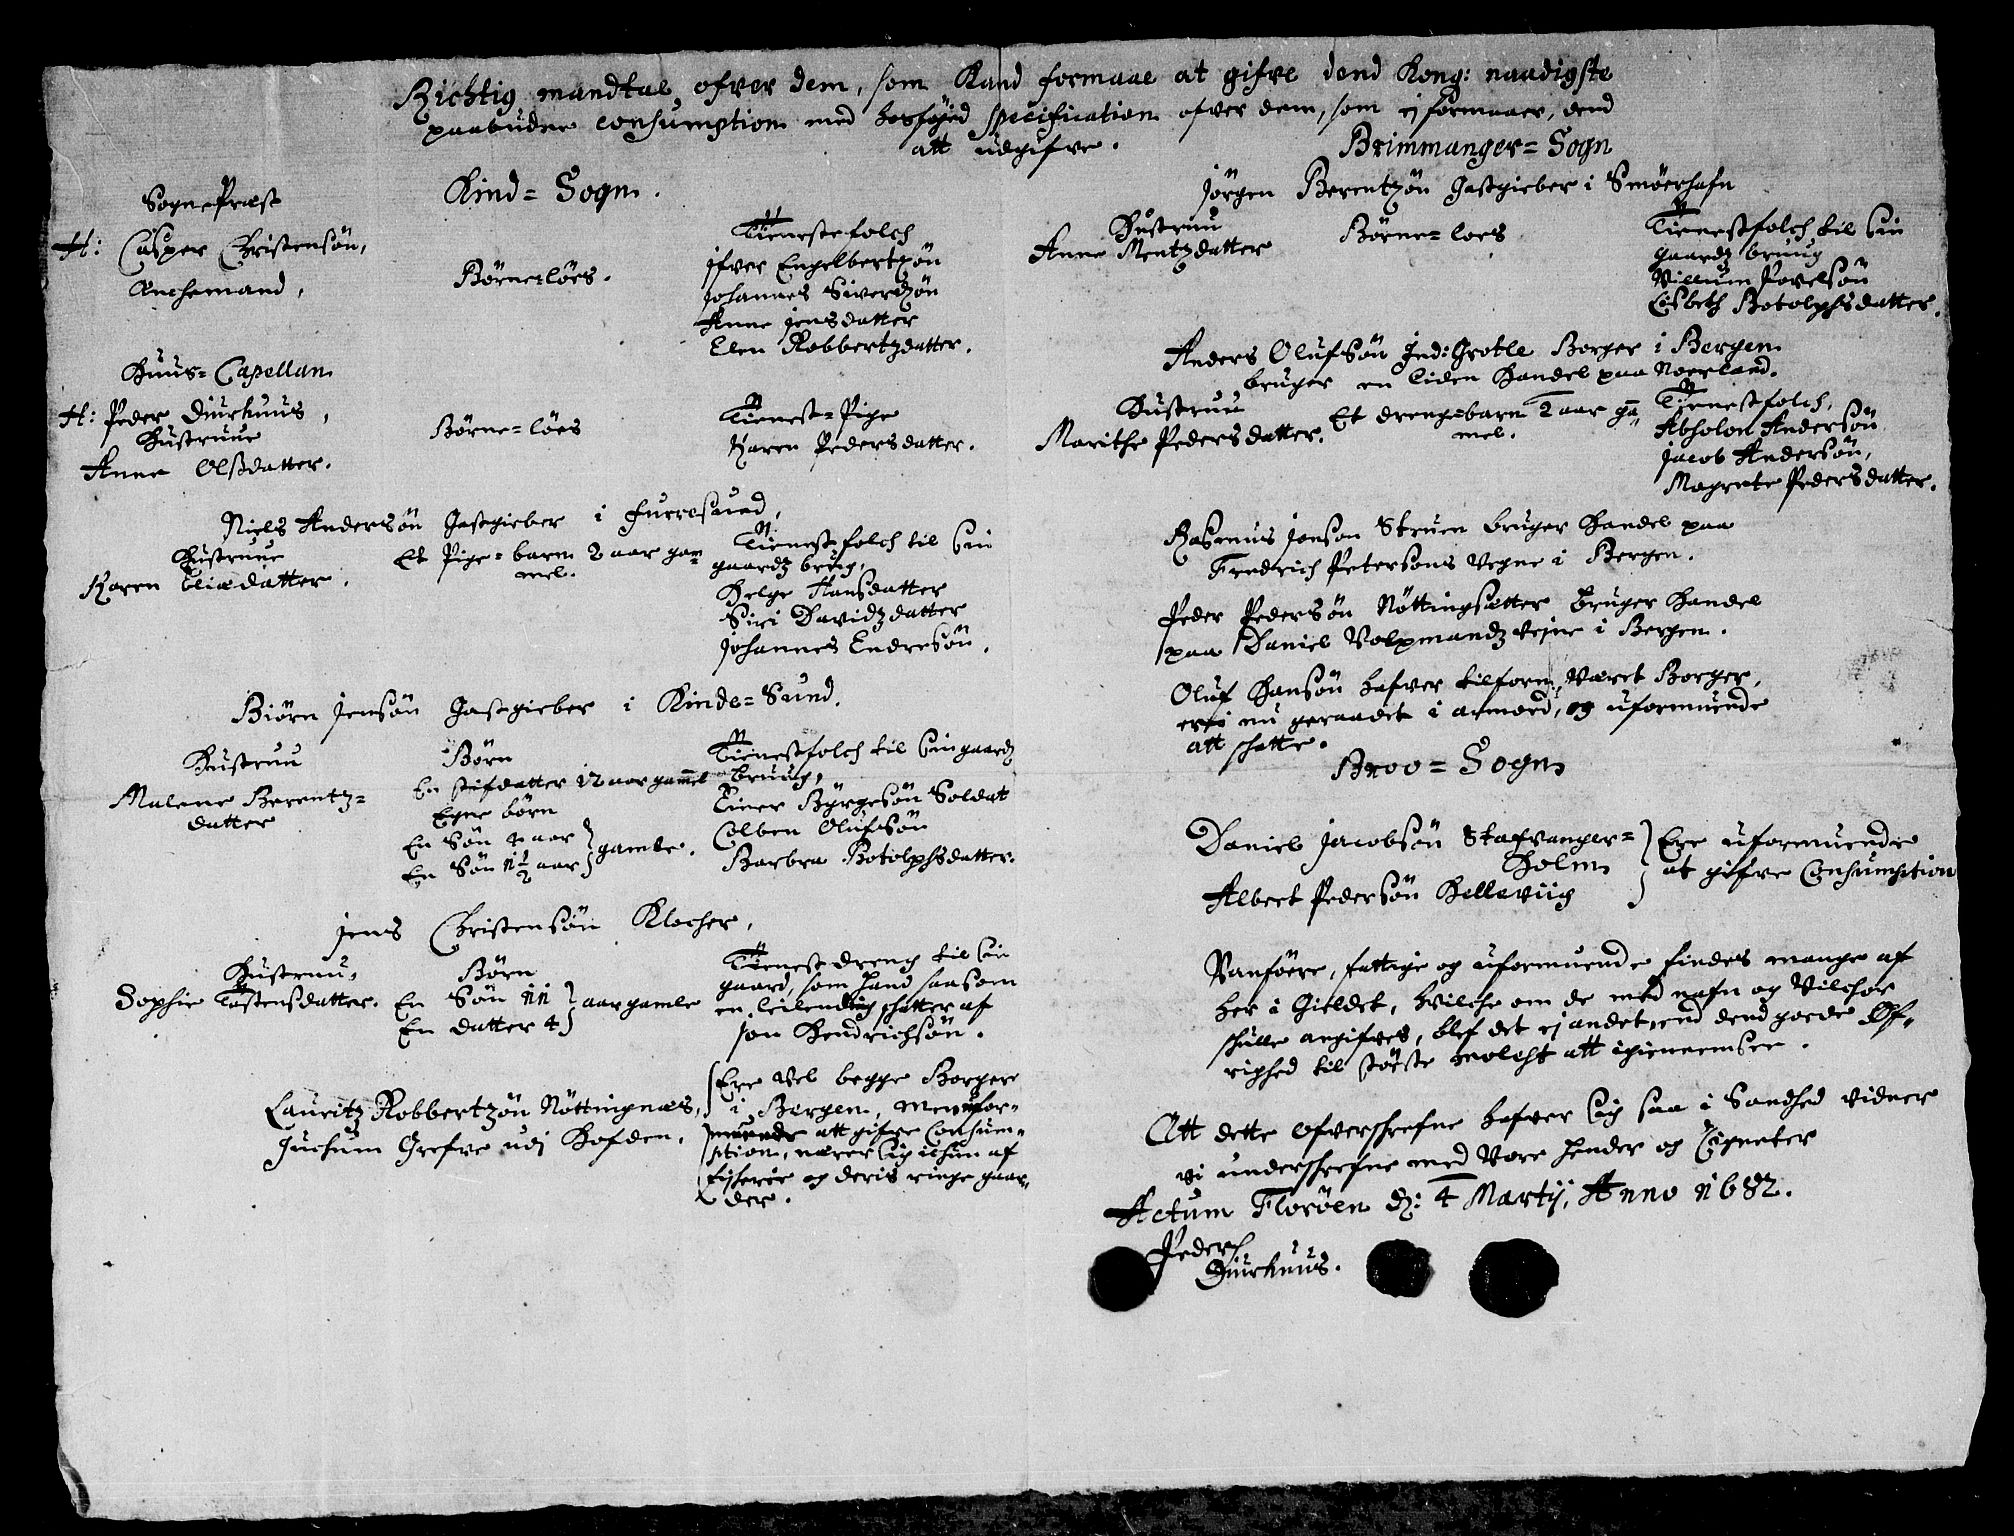 Richtig mandtal ofver dem, som Kand formaae at gifve dend Kong: naadigste
paabudne Consumption med hosføyed specification ofver dem, som ej formaaer, dend
att udgifve.
Kind = Sogn.
Sogne Præst
H: Casper Christensön,
Enchemand,
Börne=löes.
Tienestefolch
Ifver Engelbertzön
Johannes Siverdzön
Anne Jensdatter
Elen Robbertzdatter.
Huus = Capellan
H: Peder Diurhuus,
Hustruue
Anne Olßdatter.
Börne=löes
Tienest=Pige
Karen Pedersdatter.
Niels Andersön Gastgieber i Furresund,
Hustruue
Karen Eliædatter.
Et Pige=barn 2 aar gam=
mel.
Tienestfolch til sin
gaardz brug,
Helge Hansdatter
Siri Davidzdatter
Johannes Endresön.
Biörn Jensön Gastgieber i Kinde=Sund.
Hustruu
Malene Berentz=
datter
Börn
En stifdatter 12 aar gammel
Egne börn
En Sön 2 aar
En Sön 1½ aar } gamle.
Tienestfolch til sin gaardz
bruug,
Einer Byrgesön Soldat
Colben Olufsön
Barbra Botolphsdatter.
Jens Christensön Klocher,
Hustruu,
Sophie Tostensdatter.
Börn
En Sön 11
En datter 4 } aar gamle
Tienestdreng til sin
gaard, som hand saasom
en leilending schatter af
Jon Hendrichsön.
Lauritz Robbertzön Nöttingnæs,
Juchum Grefve udj Hofden.
Ere vel begge Borgere
i Bergen, men ufor=
muende att gifve Consum=
ption, nærer sig ichun af
fischerie og deris ringe gaar=
der.
Brimmanger = Sogn
Jörgen Berentzön Gastgieber i Smöerhafn
Hustruu
Anne Mentzdatter
Börne=loes
Tienestfolch til sin
gaardz bruug
Villum Povelsön
Lisbeth Botolphsdatter.
Anders Olufsön Ind: Grotle Borger i Bergen
bruger en liden Handel paa Noerland.
Hustruu
Marithe Pedersdatter.
Et drengebarn 2 aar ga=
mel.
Tienestfolch,
Absholon Andersön
Jacob Andersön,
Magrete Pedersdatter.
Rasmus Jonson Struen bruger Handel paa
Fredrich Petersøns Vegne i Bergen.
Peder Pedersön Nöttingsætter bruger Handel
paa Daniel Volpmandz vejne i Bergen.
Oluf Hansön hafver tilforn været Borger,
er nu geraadet i armoed, og uformuende
att schatte.
Broo = Sogn
Daniel Jacobsön Stafvanger=
Holm
Albert Pedersön Helleviig
} Ere uformuende
at gifve Consumption
Vanföere, fattige og uformuende findes mange af
her i Gieldet, hvilche om de med nafn og vilchor
schulle angifves, blef det ej andet end dend goede Øf=
righed til störste molest att igiennemsee.
Att dette ofverschrefne hafver sig saa i Sandhed vidner
vi underschrefne med Vore hender og Signeter
Actum Floröen d: 4 Martij, Anno 1682.
Peder
Diurhuus.